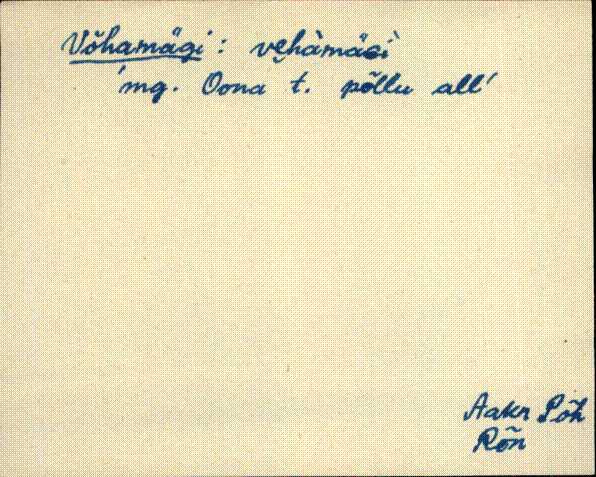 Võhamägi : vȩhàmäGì
'mg. Oona t. põllu all'
Aakr Põh
Rõn